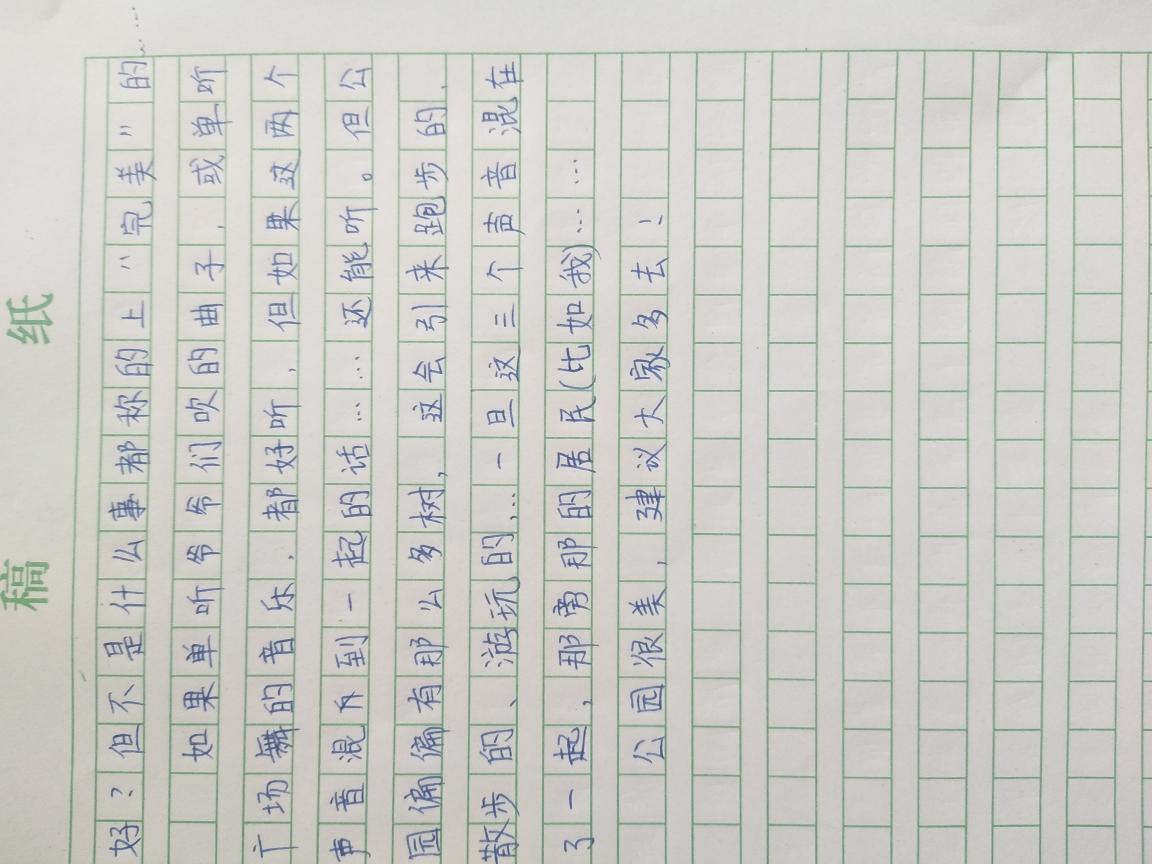 稿 纸
好？但不是什么事都称的上“完美”的……
如果单听爷爷们吹的曲子，或单听
广场舞的音乐，都好听，但如果这两个
声音混为到一起的话……还能听。但公
园偏偏有那么多树，这会引来跑步的、
散步的、游玩的…一旦这三个声音混在
了一起，那旁那的居民(比如我)……
公园很美，建议大家多去！